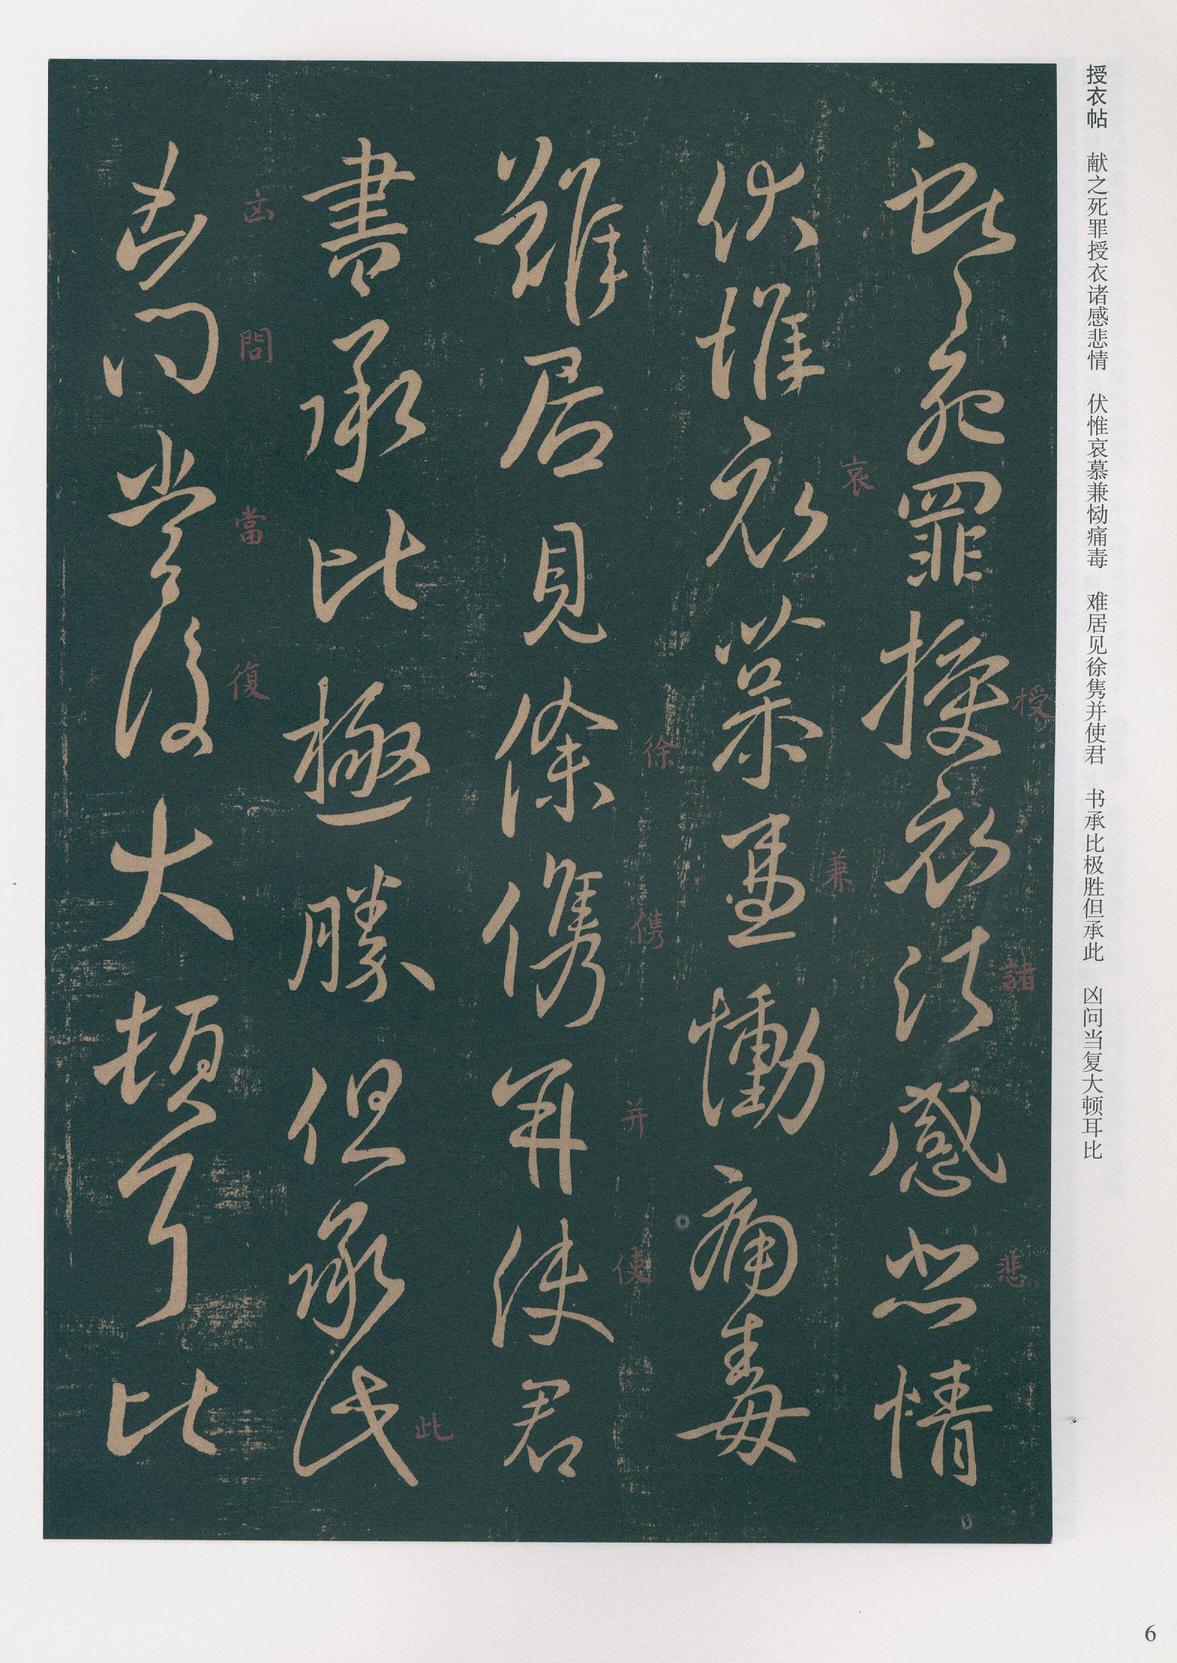 授衣帖 献之死罪授衣诸感悲情 伏惟哀慕兼恸痛毒 难居见徐隽并使君 书承比极胜但承此 凶问当复大顿耳比
獻之死罪授衣諸感悲情
授
諸
悲
伏惟哀慕兼慟痛毒
哀
兼
難居見徐儁并使君
徐
儁
并
使
書承比極勝但承此
此
凶問當復大頓耳比
凶
問
當
復
6